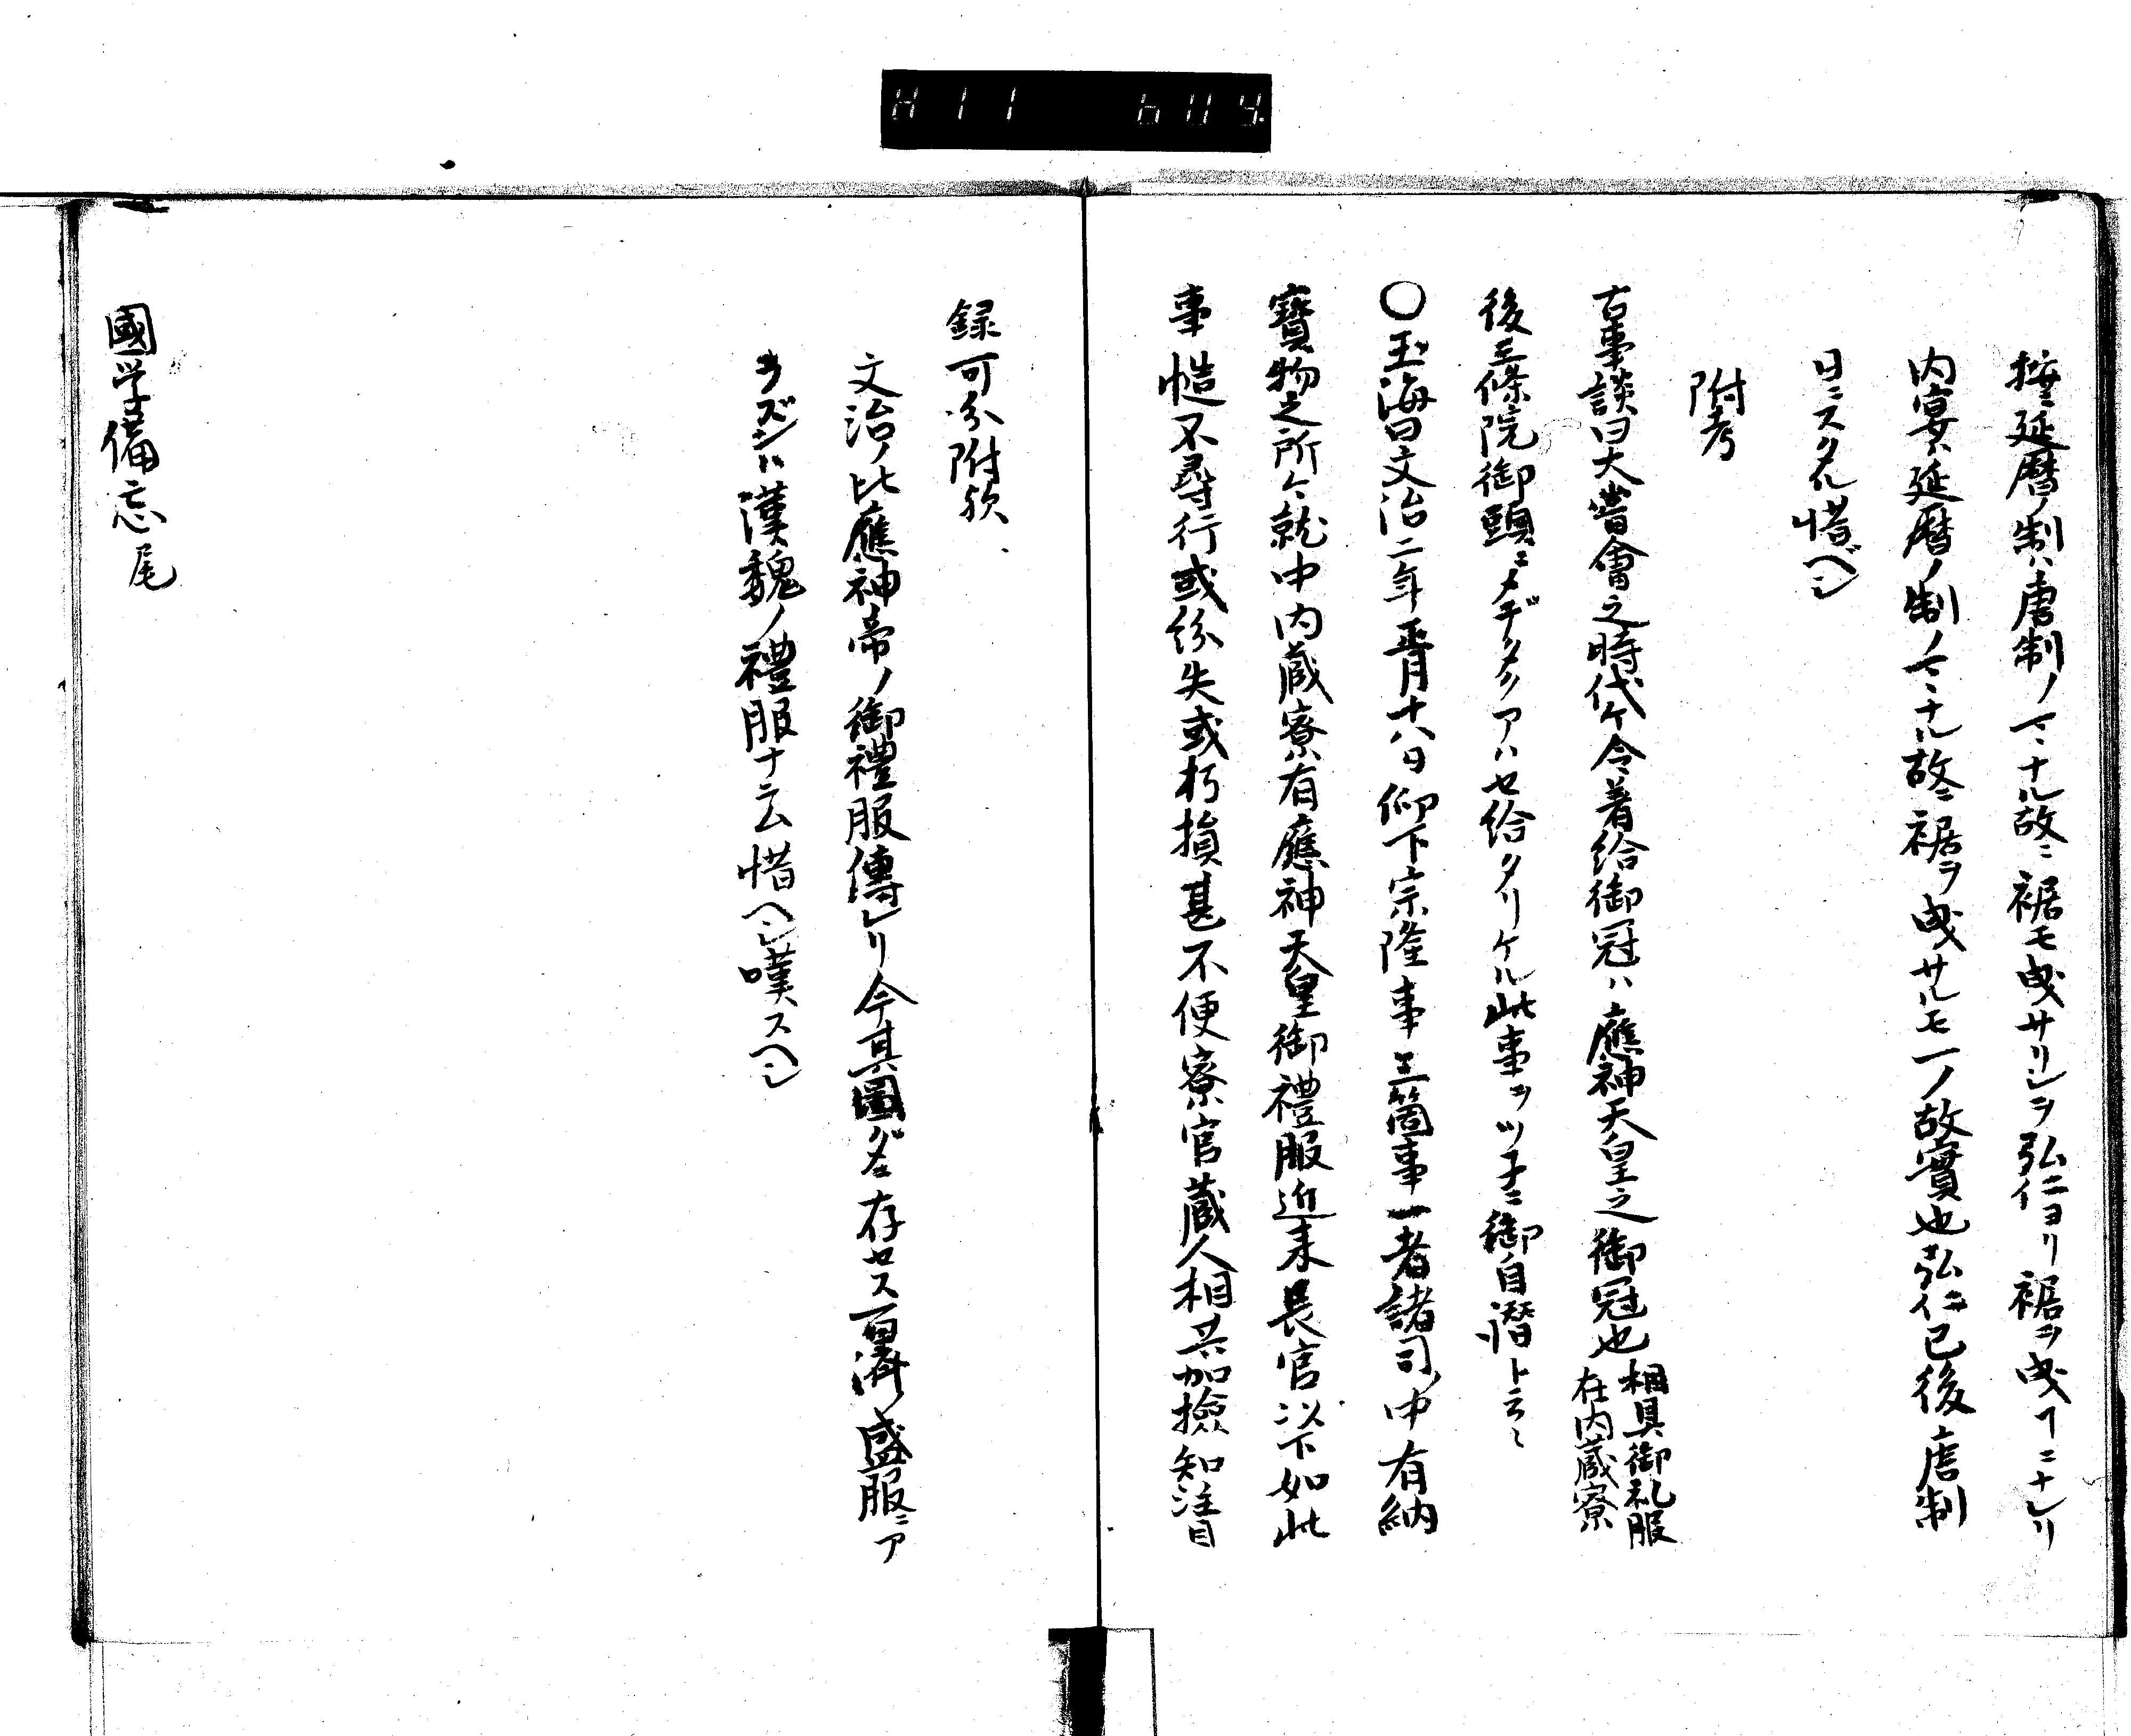 H11 604.
按ニ延暦ノ制ハ唐制ノマヽナル故ニ裾モ曳サリシヲ弘仁ヨリ裾ヲ曳ヿニナレリ
内宴ハ延暦ノ制ノマヽナル故ニ裾ヲ曳サルモ一ノ故實也弘仁已後唐制
日ニスタル惜ベシ
附考
古事談曰大嘗會之時代々令着給御冠ハ應神天皇之御冠也
相具御礼服
在内蔵寮
後三條院御頭ニメデタクアハセ給タリケル此事ヲツ子ニ御自讃ト云々
〇玉海曰文治二年正月十八日仰下宗隆事三箇事一者諸司ノ中有納
寶物之所々就中内蔵寮有應神天皇御禮服近来長官以下如此
事慥不尋行或紛失或朽損甚不便寮官蔵人相共加撿知注目
録可分附欤
文治ノ比應神帝ノ御禮服傳レリ今其圖ダニ存セス百濟ノ盛服ニア
ラズンハ漢魏ノ禮服ナラム惜ヘシ嘆スヘシ
國学備忘尾